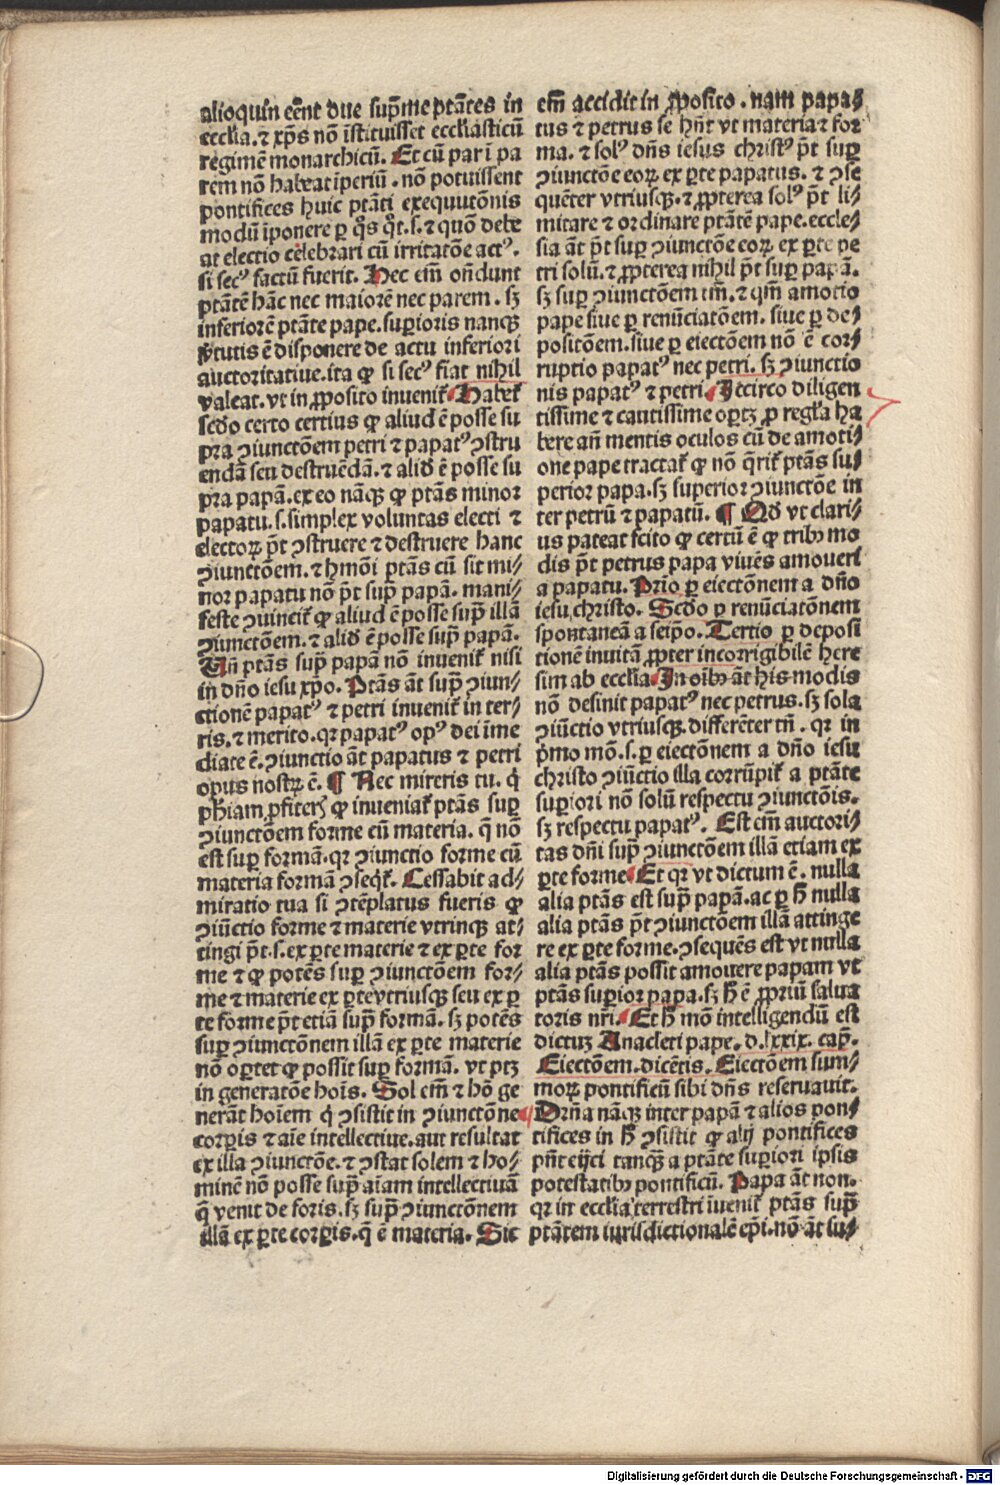 alioquin eēnt due sup̄me ptātes in
eccl̄ia. ⁊ xp̄s nō īstituisset eccl̄iasticū
regimē monarchicū. Et cū par ī pa
rem nō habeat īperiū. nō potuissent
pontifices huic ptāti exequutōnis
modū īponere ꝑ q̄s q̄t. s. ⁊ quō debe
at electio celebrari cū irritatōe actꝰ.
si secꝰ factū fuerit. Hec em̄ on̄dunt
ptātē hāc nec maiorē nec parem. sꝫ
inferiorē ptāte pape. suꝑioris nanqꝫ
v̄tutis ē disponere de actu inferiori
auctoritatiue. ita ꝙ si secꝰ fiat nihil
valeat. vt in ꝓposito inuenit̄. Habet̄
scd̄o certo certius ꝙ aliud ē posse su
pra ꝯiunctōem petri ⁊ papatꝰ ꝯstru
endā seu destruēdā. ⁊ alid̄ ē posse su
pra papā. ex eo nāqꝫ ꝙ ptās minor
papatu. s. simplex voluntas electi ⁊
electoꝝ p̄t ꝯstruere ⁊ destruere hanc
ꝯiunctōem. ⁊ hmōi ptās cū sit mi⸗
nor papatu nō p̄t sup̄ papā. mani⸗
feste ꝯuincit̄ ꝙ aliud ē posse sup̄ illā
ꝯiunctōem. ⁊ alid̄ ē posse sup̄ papā.
Un̄ ptās sup̄ papā nō inuenit̄ nisi
in dn̄o iesu xp̄o. Ptās āt sup̄ ꝯiun⸗
ctionē papatꝰ ⁊ petri inuenit̄ in ter⸗
ris. ⁊ merito. qꝛ papatꝰ opꝰ dei īme
diate ē. ꝯiunctio āt papatus ⁊ petri
opus nostꝝ ē. ¶ Nec mireris tu. q̇
phīam ꝓfiteris ꝙ inueniat̄ ptās suꝑ
ꝯiunctōem forme cū materia. q̄ nō
est suꝑ formā. qꝛ ꝯiunctio forme cū
materia formā ꝯseq̄t̄. Cessabit ad⸗
miratio tua si ꝯtēplatus fueris ꝙ
ꝯiūctio forme ⁊ materie vtrinqꝫ at⸗
tingi p̄t. s. ex ꝑte materie ⁊ ex ꝑte for
me ⁊ ꝙ potēs suꝑ ꝯiunctōem for⸗
me ⁊ materie ex ꝑte vtriusqꝫ seu ex ꝑ
te forme p̄t etiā sup̄ formā. sꝫ potēs
suꝑ ꝯiunctōnem illā ex ꝑte materie
nō oꝑtet ꝙ possit suꝑ formā. vt ptꝫ
in generatōe hoīs. Sol em̄ ⁊ hō ge
nerāt hoīem q̇ ꝯsistit in ꝯiunctōne
corꝑis ⁊ aīe intellectiue. aut resultat
ex illa ꝯiunctōe. ⁊ ꝯstat solem ⁊ ho⸗
minē nō posse sup̄ aīam intellectiuā
q̄ venit de foris. sꝫ sup̄ ꝯiunctōnem
illā ex ꝑte corꝑis. q̄ ē materia. Sic
em̄ accidit in ꝓposito. nam papa⸗
tus ⁊ petrus se hn̄t vt materia ⁊ for
ma. ⁊ solꝰ dn̄s iesus christꝰ p̄t suꝑ
ꝯiunctōe eoꝝ ex ꝑte papatus. ⁊ ꝯse
quēter vtriusqꝫ. ⁊ ꝓpterea solꝰ p̄t li⸗
mitare ⁊ ordinare ptātē pape. eccle⸗
sia āt p̄t suꝑ ꝯiunctōe eoꝝ ex ꝑte pe
tri solū. ⁊ ꝓpterea nihil p̄t suꝑ papā.
sꝫ suꝑ ꝯiunctōem tm̄. ⁊ qm̄ amotio
pape siue ꝑ renūciatōem. siue ꝑ de⸗
positōem. siue ꝑ eiectōem nō ē cor⸗
ruptio papatꝰ nec petri. sꝫ ꝯiunctio
nis papatꝰ ⁊ petri. Iccirco diligen
tissime ⁊ cautissime oportꝫ ꝓ regl̄a ha
bere an̄ mentis oculos cū de amoti⸗
one pape tractat̄ ꝙ nō q̄rit̄ ptās su⸗
perior papa. sꝫ superior ꝯiunctōe in
ter petrū ⁊ papatū. ¶ Qd̄ vt clari⸗
us pateat scito ꝙ certū ē ꝙ tribꝰ mo
dis p̄t petrus papa viuēs amoueri
a papatu. Prīo ꝑ eiectōnem a dn̄o
iesu christo. Scd̄o ꝑ renūciatōnem
spontaneā a seip̄o. Tertio ꝑ deposi
tionē inuitā ꝓpter incorrigibilē here
sim ab eccl̄ia. In oībꝰ āt his modis
nō desinit papatꝰ nec petrus. sꝫ sola
ꝯiūctio vtriusqꝫ. differēter tn̄. qꝛ in
p̄mo mō. s. ꝑ eiectōnem a dn̄o iesu
christo ꝯiūctio illa corrūpit̄ a ptāte
suꝑiori nō solū respectu ꝯiunctōis.
sꝫ respectu papatꝰ. Est em̄ auctori⸗
tas dn̄i sup̄ ꝯiunctōem illā etiam ex
ꝑte forme. Et qꝛ vt dictum ē. nulla
alia ptās est sup̄ papā. ac ꝑ h̄ nulla
alia ptās p̄t ꝯiunctōem illā attinge
re ex ꝑte forme. ꝯsequēs est vt nulla
alia ptās possit amouere papam vt
ptās suꝑior papa. sꝫ h̄ ē ꝓpriū salua
toris nr̄i. Et h̄ mō intelligendū est
dictuꝫ Anacleti pape. d. lxxix. cap̄.
Eiectōem. dicētis. Eiectōem sum⸗
moꝝ pontificū sibi dn̄s reseruauit.
Drn̄a nāqꝫ inter papā ⁊ alios pon⸗
tifices in h̄ ꝯsistit ꝙ alij pontifices
pn̄t eijci tanqꝫ a ptāte suꝑiori ipsis
potestatibꝰ pontificū. Papa āt non.
qꝛ in eccl̄ia terrestri īuenit̄ ptās sup̄
ptātem iurisdictionalē ep̄i. nō āt su⸗
Digitalisierung gefördert durch die Deutsche Forschungsgemeinschaft - DFG